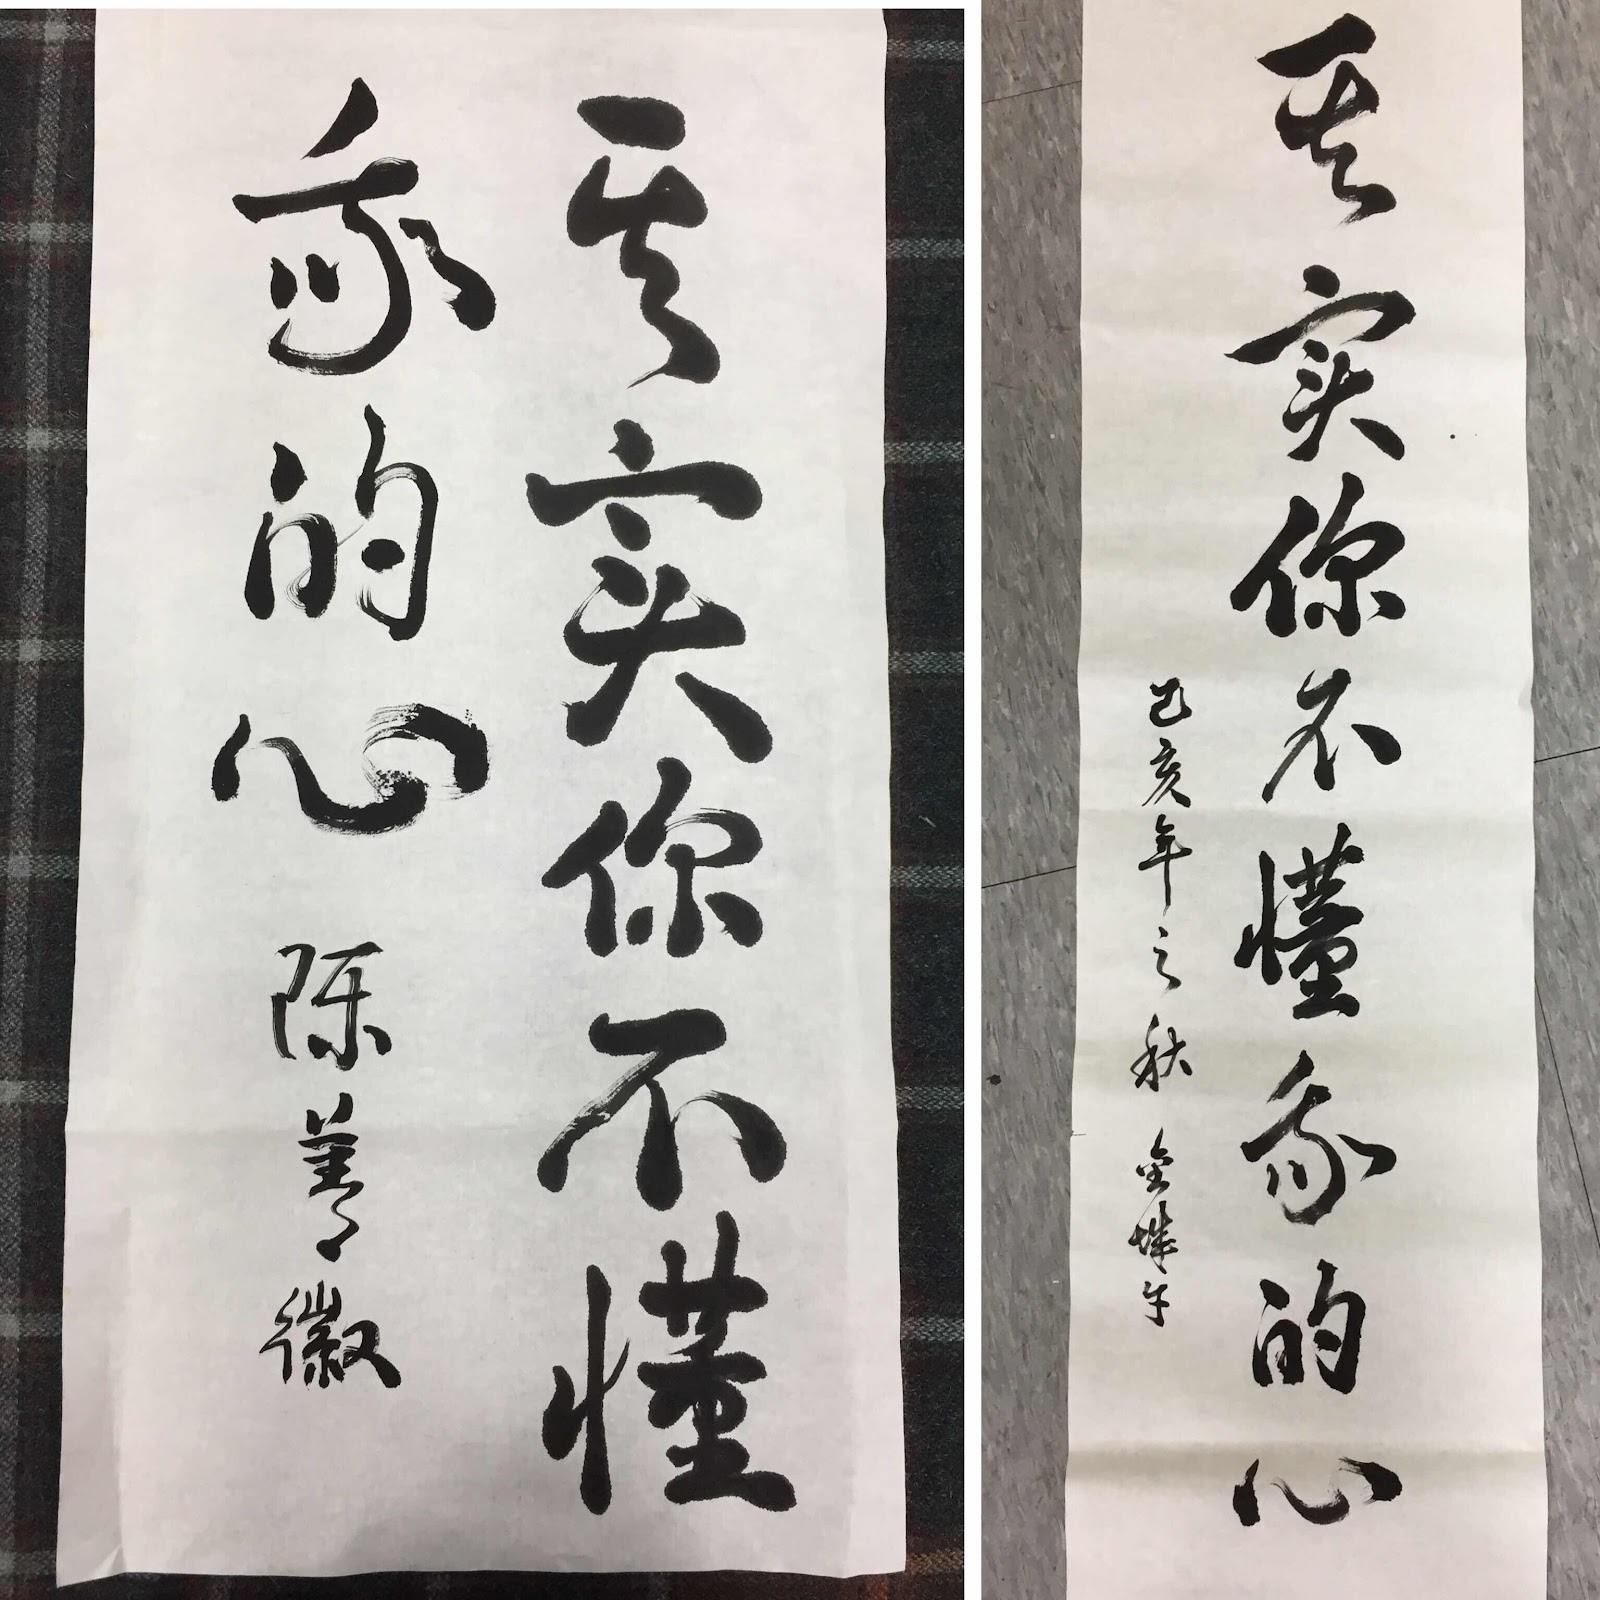 其实你不懂
我的心 陈善徽
其实你不懂我的心
己亥年之秋 金城午